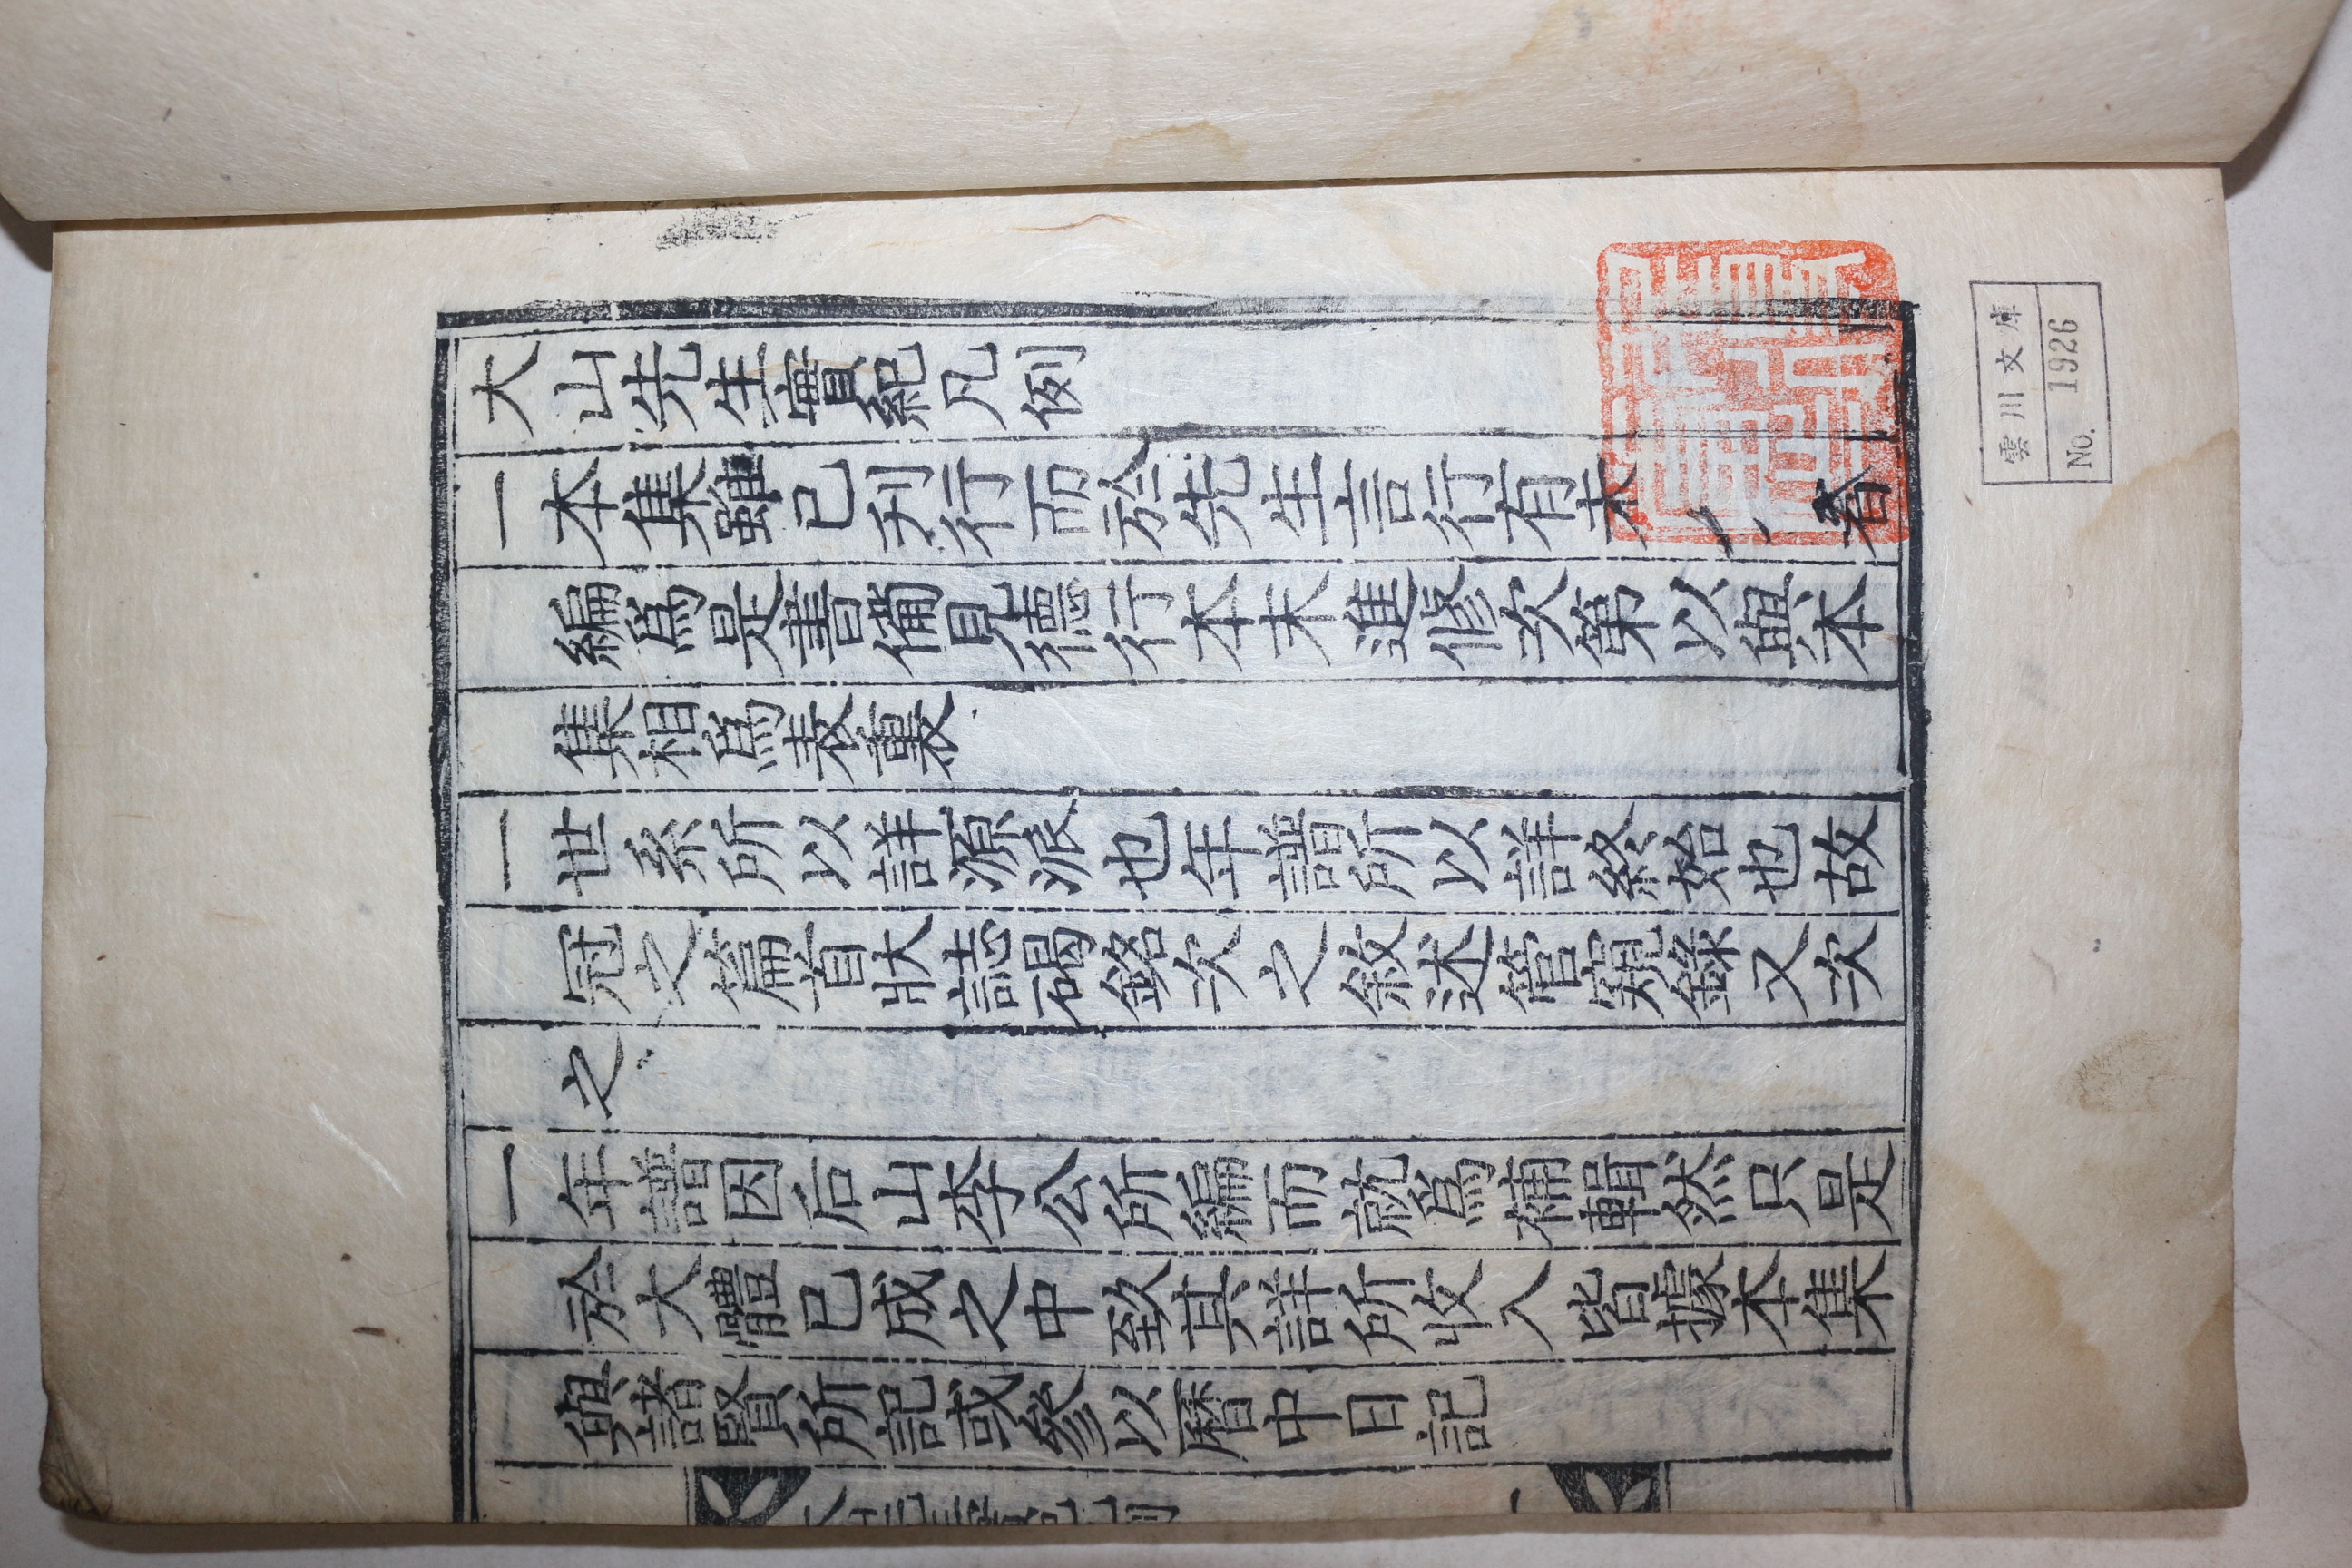 大山先生實紀凡例
一本集雖已刋行而於先生言行有未
編爲是書備見德行本末進修次第以與本
集相爲表裏
一世系所以詳源派也年譜所以詳終始也故
冠之篇首狀誌碣銘次之敘述管窺錄又次
之
一年譜因后山李公所編而就爲補輯然只是
於大體已成之中致其詳所收入皆據本集
與諸賢所記或叅以曆中日記
雲川文庫
No. 1926